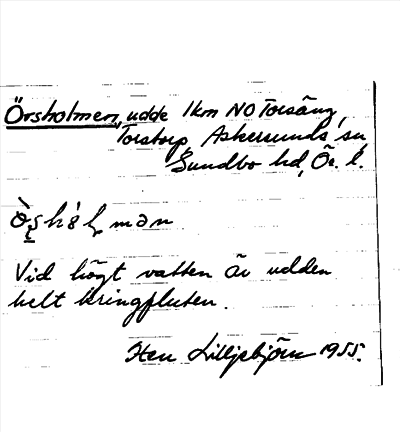 Örsholmen, udde 1km NO Torsäng,
Torstorp, Askersunds sn,
Sundbo hd, Ör. l.
Vid högt vatten är udden
helt kringfluten.
Sten Lilljebjörn 1955.